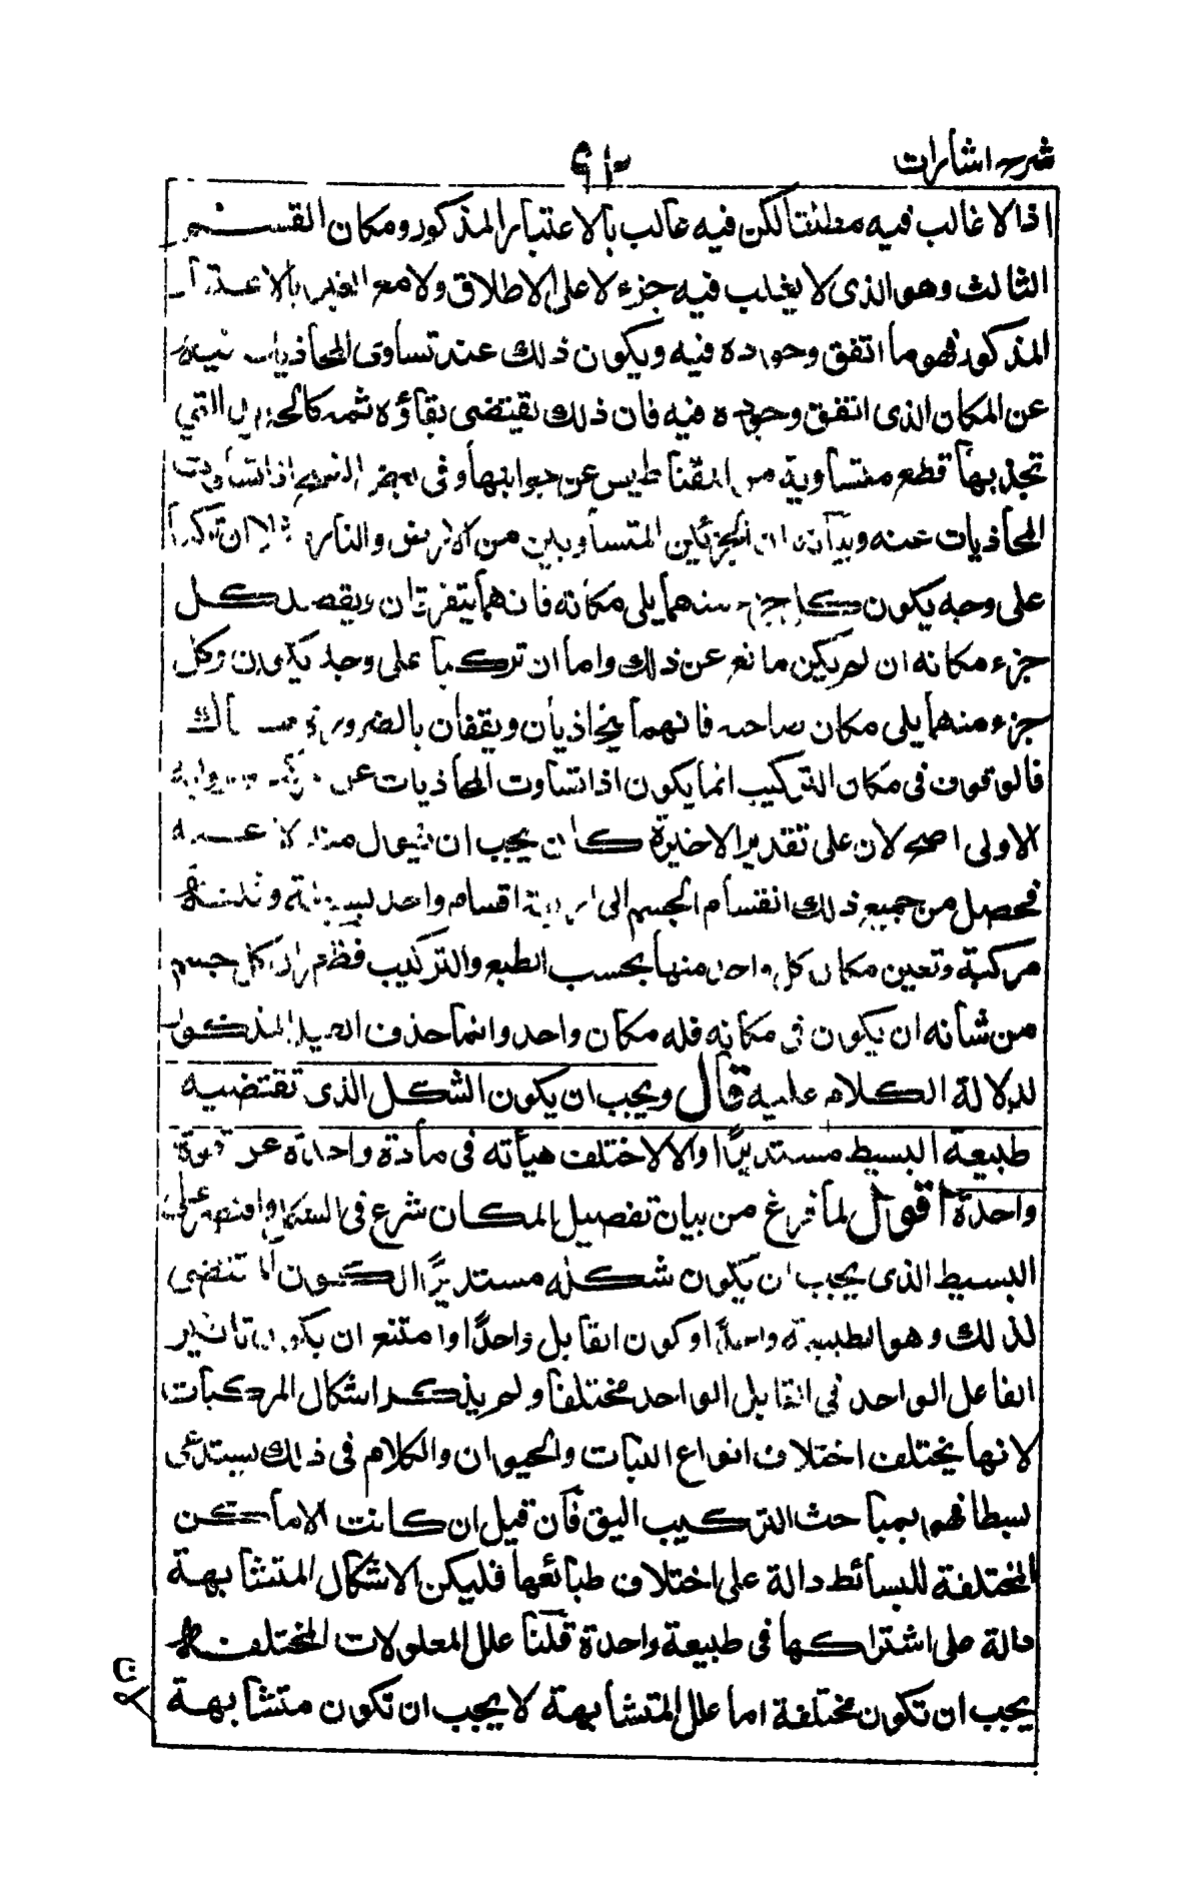 شرح اشارات
اذ الا غالب فيه مطلقا لكن فيه غالب بالاعتبار المذكور ومكان القسم
الثالث وهو الذى لا يغلب فيه جزء لا على الاطلاق ولا مع الغير بالاعتبار
المذكور فهو ما اتفق وجوده فيه ويكون ذلك عند تساوى المحاذيات فيه
عن المكان الذى اتفق وجوده فيه فان ذلك يقتضى بقاؤه ثمه كالحديد التي
تجذبها قطع متساوية من المقناطيس عن جوانبها وفى بعض النسخ اذا تساوت
المحاذيات عنه وبيانه ان الجزئين المتساويين من الارض والنار مثلا ان تركبا
على وجه يكون كل جزء منهما يلى مكانه فانهما يتفرقان ويقصد كل
جزء مكانه ان لم يكن مانع عن ذلك واما ان تركبا على وجه يكون وكل
جزء منهما يلى مكان صاحبه فانهما يتجاذبان ويقفان بالضرورة هناك
فالوقوف فى مكان التركيب انما يكون اذا تساوت المحاذيات عن
الاولى اصح لان على تقدير الاخيرة كان يجب ان يقول منه لا عنه
فحصل من جميع ذلك انقسام الجسم الى اربعة اقسام واحد بسيط وثلثة
مركبة وتعين مكان كل واحد منها بحسب الطبع والتركيب فظهر ان كل جسم
من شانه ان يكون فى مكانه فله مكان واحد وانما حذف القيد المذكور
لدلالة الكلام عليه قال ويجب ان يكون الشكل الذى تقتضيه
طبيعة البسيط مستديرًا والا لاختلف هيأته فى مادة واحدة عن قوة
واحدة اقول لما فرغ من بيان تفصيل المكان شرع فى الشكل واقتصر على
البسيط الذى يجب ان يكون شكله مستديرًا لكون المقتضى
لذلك وهو الطبيعة واحدًا وكون القابل واحدًا وامتنع ان يكون تاثير
الفاعل الواحد فى القابل الواحد مختلفا ولم يذكر اشكال المركبات
لانها يختلف اختلاف انواع النبات والحيوان والكلام فى ذلك يستدعى
بسطا فهو بمباحث التركيب اليق فان قيل ان كانت الاماكن
المختلفة للبسائط دالة على اختلاف طبائعها فليكن الاشكال المتشابهة
دالة على اشتراكها فى طبيعة واحدة قلنا علل المعلولات المختلفة
يجب ان تكون مختلفة اما علل المتشابهة لا يجب ان تكون متشابهة